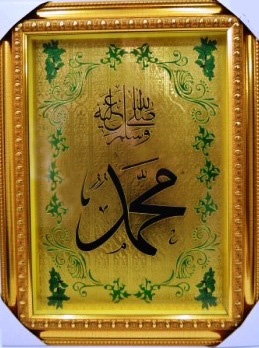 صلى الله عليه
وسلم
محمد